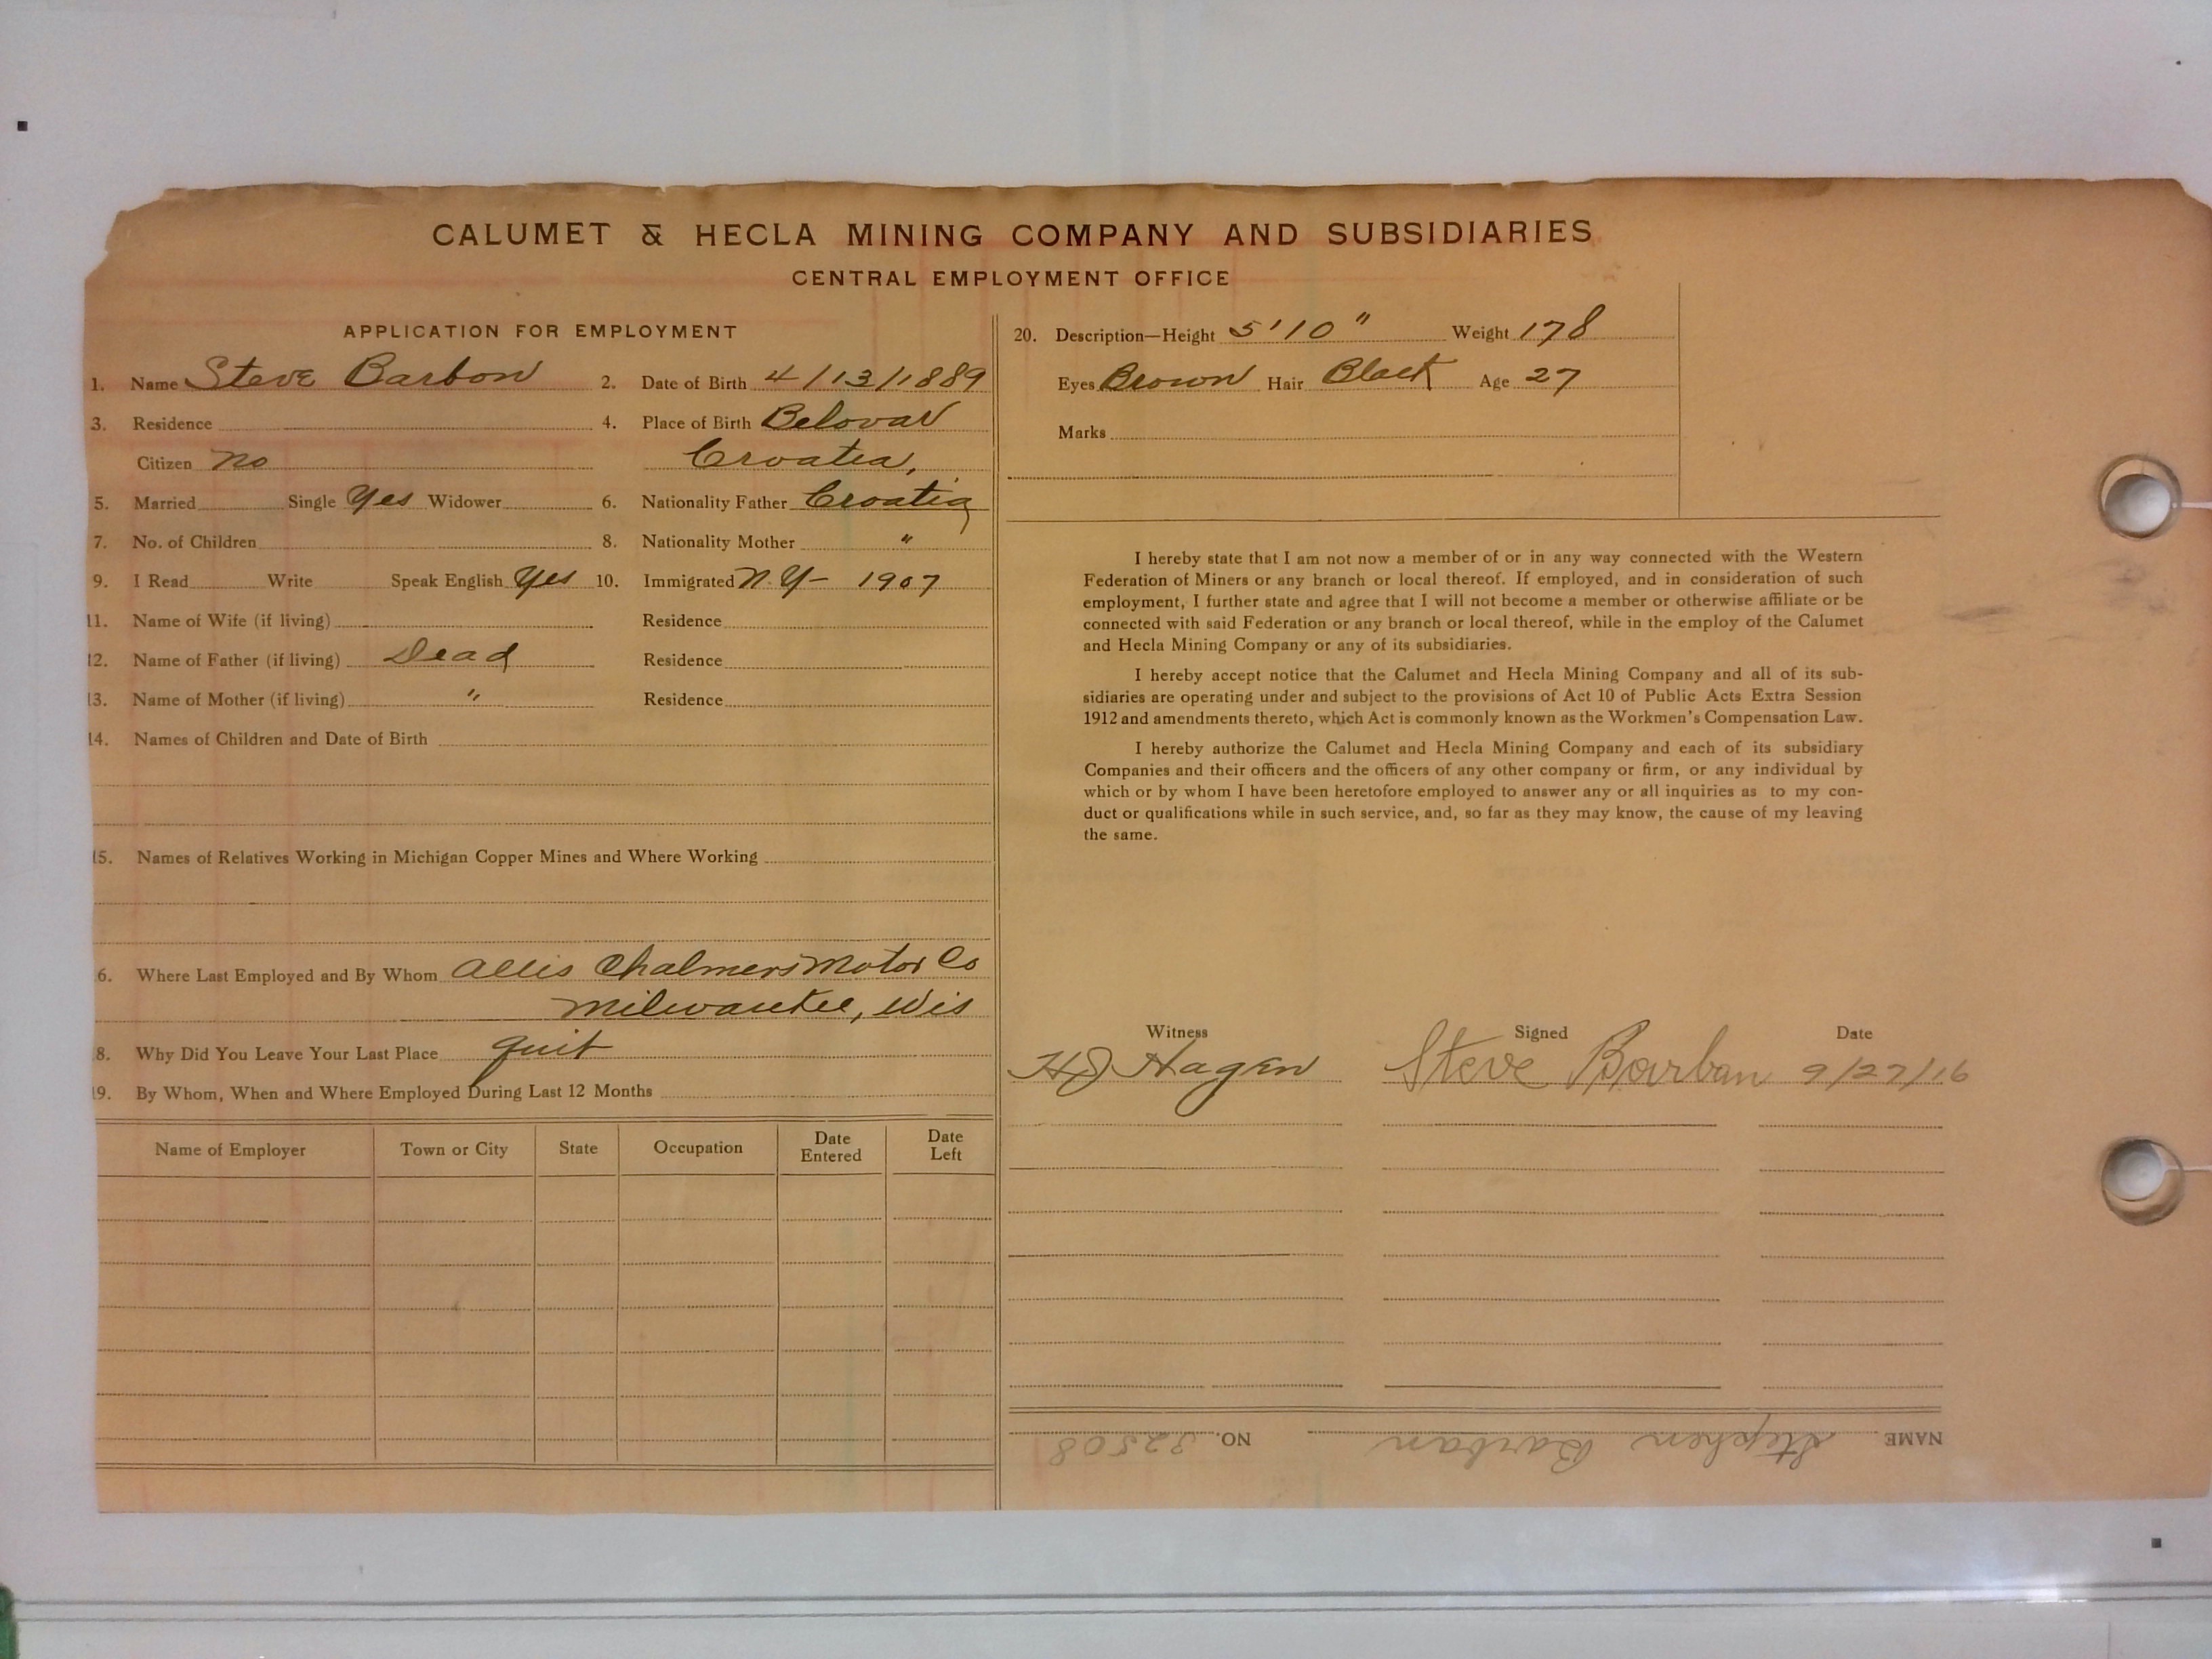 CALUMET & HECLA MINING COMPANY AND SUBSIDIARIES
CENTRAL EMPLOYMENT OFFICE
APPLICATION FOR EMPLOYMENT
1. Name Steve Barbon 2. Date of Birth 4/13/1889
3. Residence 4. Place of Birth Belovar
Citizen no Croatia,
5. Married Single Yes Widower 6. Nationality Father Croatia
7. No. of Children 8. Nationality Mother "
9. I Read Write Speak English Yes 10. Immigrated N.Y- 1907
11. Name of Wife (if living) Residence
12. Name of Father (if living) Dead Residence
13. Name of Mother (if living) " Residence
14. Names of Children and Date of Birth
15. Names of Relatives Working in Michigan Copper Mines and Where Working
6. Where Last Employed and By Whom Allis Chalmers Motor Co
Milwaukee, Wis
8. Why Did You Leave Your Last Place quit
19. By Whom, When and Where Employed During Last 12 Months
Name of Employer Town or City State Occupation Date Entered Date Left
20. Description—Height 5'10" Weight 178
Eyes Brown Hair Black Age 27
Marks
I hereby state that I am not now a member of or in any way connected with the Western
Federation of Miners or any branch or local thereof. If employed, and in consideration of such
employment, I further state and agree that I will not become a member or otherwise affiliate or be
connected with said Federation or any branch or local thereof, while in the employ of the Calumet
and Hecla Mining Company or any of its subsidiaries.
I hereby accept notice that the Calumet and Hecla Mining Company and all of its sub-
sidiaries are operating under and subject to the provisions of Act 10 of Public Acts Extra Session
1912 and amendments thereto, which Act is commonly known as the Workmen's Compensation Law.
I hereby authorize the Calumet and Hecla Mining Company and each of its subsidiary
Companies and their officers and the officers of any other company or firm, or any individual by
which or by whom I have been heretofore employed to answer any or all inquiries as to my con-
duct or qualifications while in such service, and, so far as they may know, the cause of my leaving
the same.
Witness Signed Date
HJ Hagen Steve Barban 9/27/16
NAME Stephen Barban NO. 32508